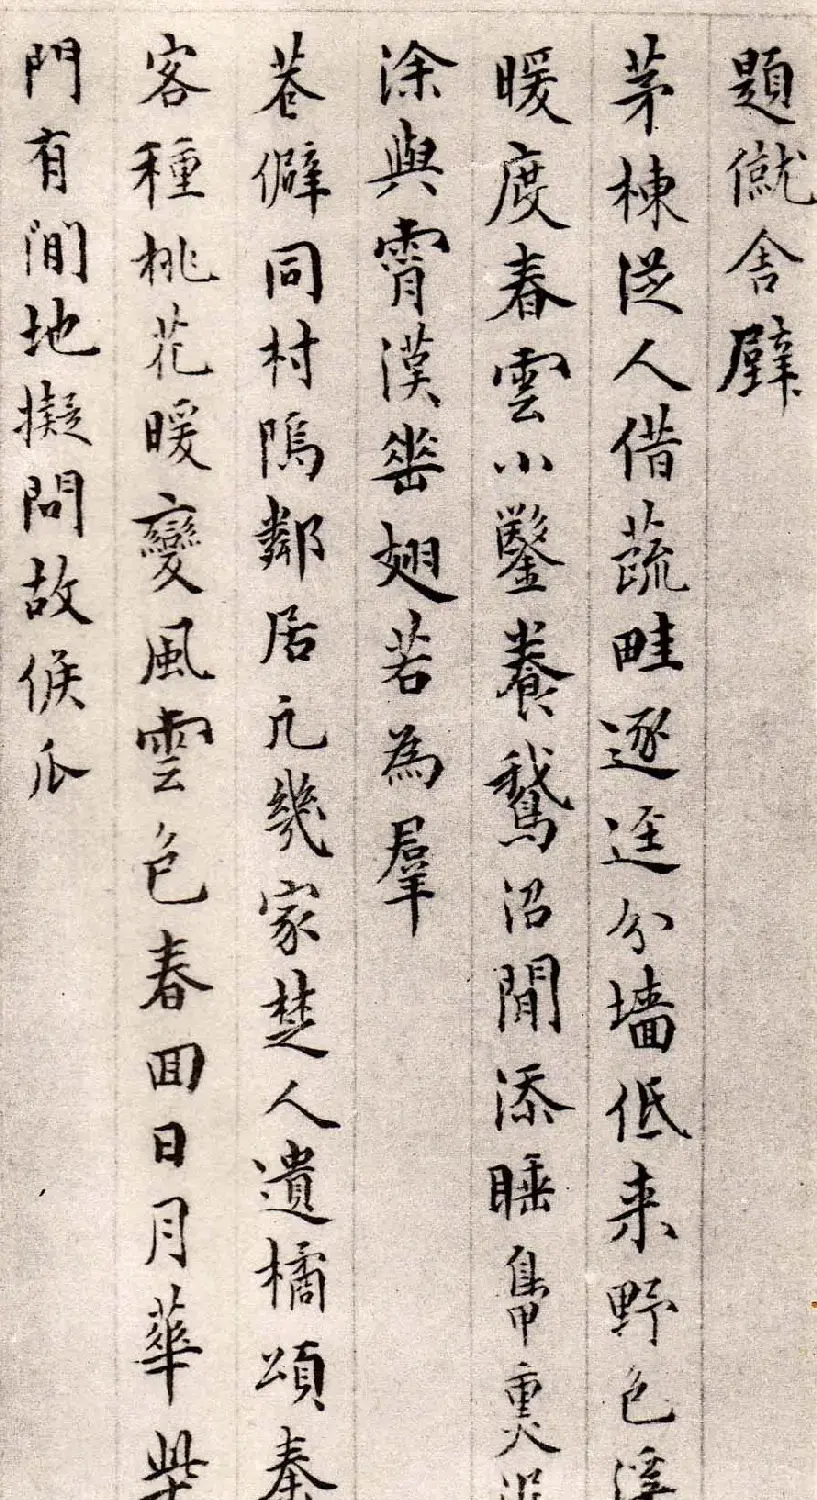 題僦舍壁
茅棟從人借蔬畦逐逕分墻低来野色深
暖度春雲小鑿養鵞沼閒添睡鳧熏
涂與霄漢垂翅若為羣
巷僻同村隖鄰居凢幾家楚人遺橘頌秦
客種桃花暖變風雲色春回日月華柴
門有閒地擬問故侯瓜